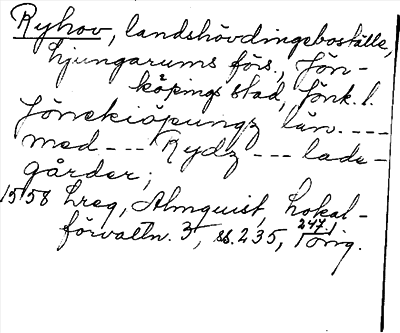 Ryhov, landshövdingeboställe,
Ljungarums förs., Jön-
köpings stad, Jönk. l.
Jönekiöpungz län. ----
med --- Rydz --- lade-
gårder;
1558 Lreg, Almquist, Lokal-
förvaltn. 3, ss. 235, 247. Orig.